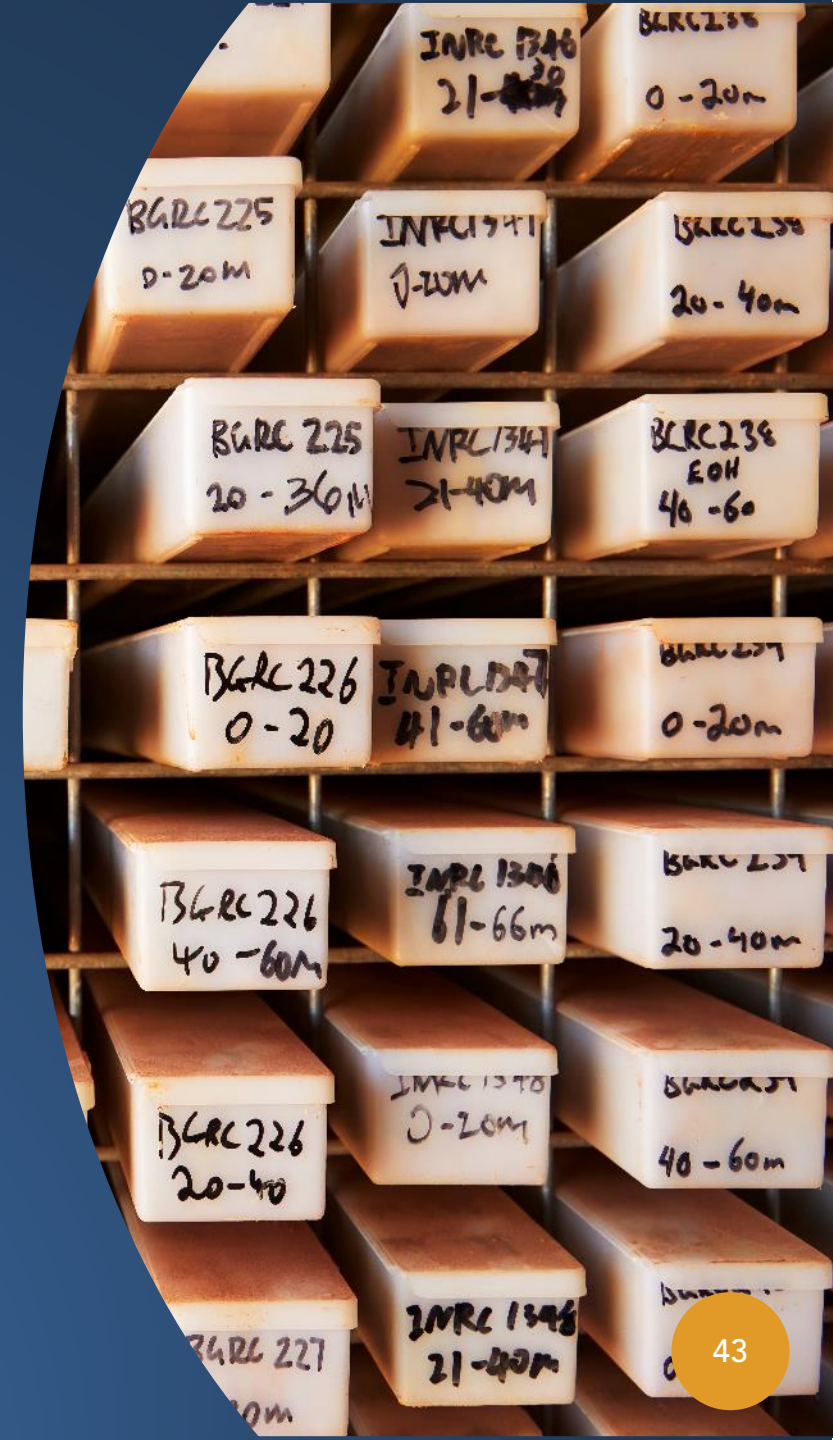 INRC 1346
30
21-
BGRC238
0-20m
BGRC225
0-20m
INRC1347
0-20m
BGRC238
20-40m
BGRC 225
20-36M
INRC1347
21-40m
BGRC238
EOH
40-60
BGRC 226
0-20
INRC1347
41-60m
BGRC239
0-20m
BGRC226
40-60m
INRC
61-66m
BGRC239
20-40m
BGRC226
20-40
INRC1348
0-20m
BGRC239
40-60m
BGRC 227
INRC 1348
21-40m
43